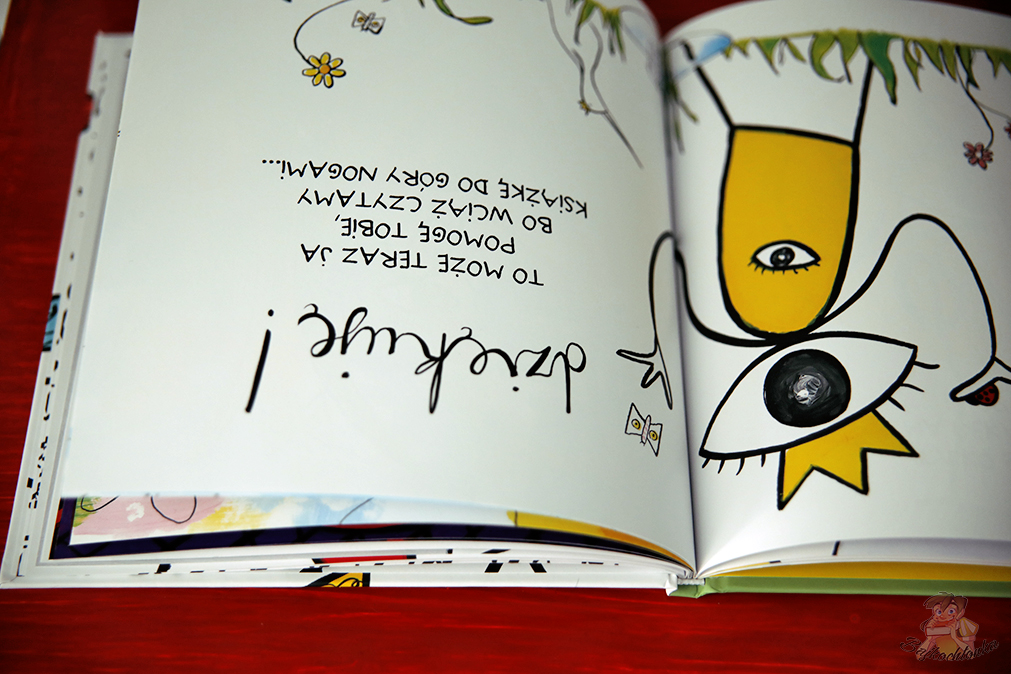 dziękuję!
TO MOŻE TERAZ JA
POMOGĘ TOBIE,
BO WCIĄŻ CZYTAMY
KSIĄŻKĘ DO GÓRY NOGAMI...